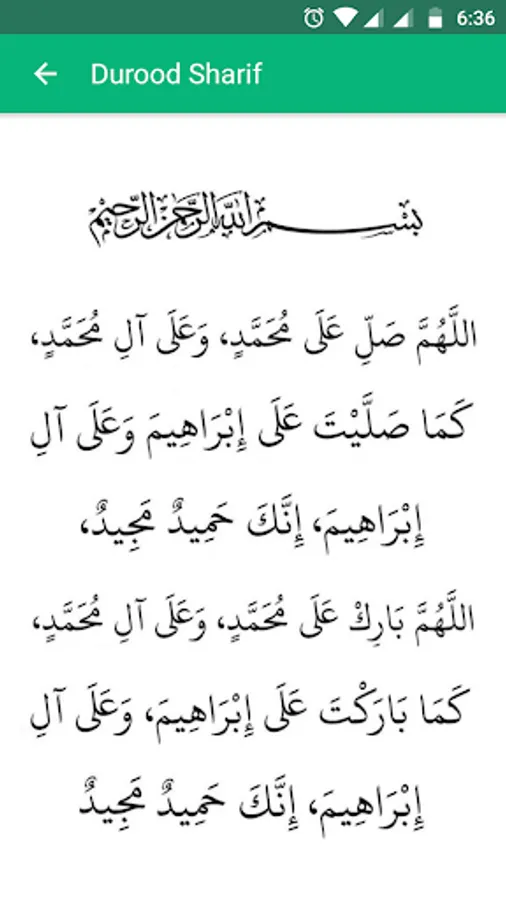 6:36
Durood Sharif
بسم الله الرحمن الرحيم
اللَّهُمَّ صَلِّ عَلَى مُحَمَّدٍ، وَعَلَى آلِ مُحَمَّدٍ،
كَمَا صَلَّيْتَ عَلَى إِبْرَاهِيمَ وَعَلَى آلِ
إِبْرَاهِيمَ، إِنَّكَ حَمِيدٌ مَجِيدٌ،
اللَّهُمَّ بَارِكْ عَلَى مُحَمَّدٍ، وَعَلَى آلِ مُحَمَّدٍ،
كَمَا بَارَكْتَ عَلَى إِبْرَاهِيمَ، وَعَلَى آلِ
إِبْرَاهِيمَ، إِنَّكَ حَمِيدٌ مَجِيدٌ